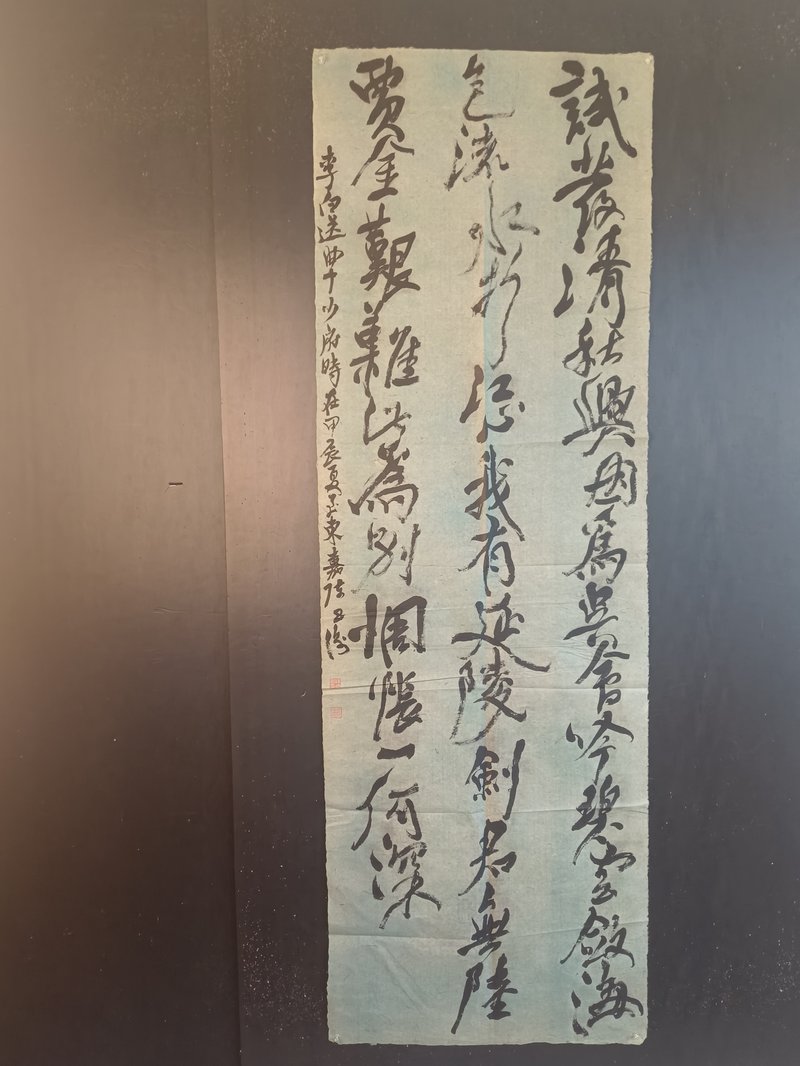 試發清秋興因為吳會吟碧雲斂海
色流水折江心我有延陵劍君無陸
賈金艱難此為別惆悵一何深
李白送曲十少府時在甲辰夏於東嘉